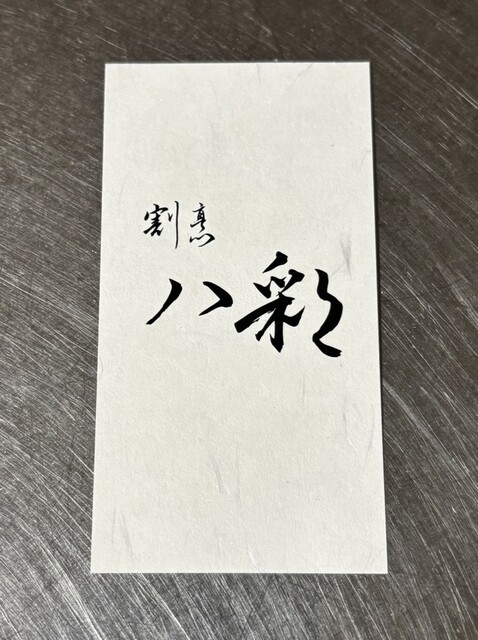 割烹
八彩